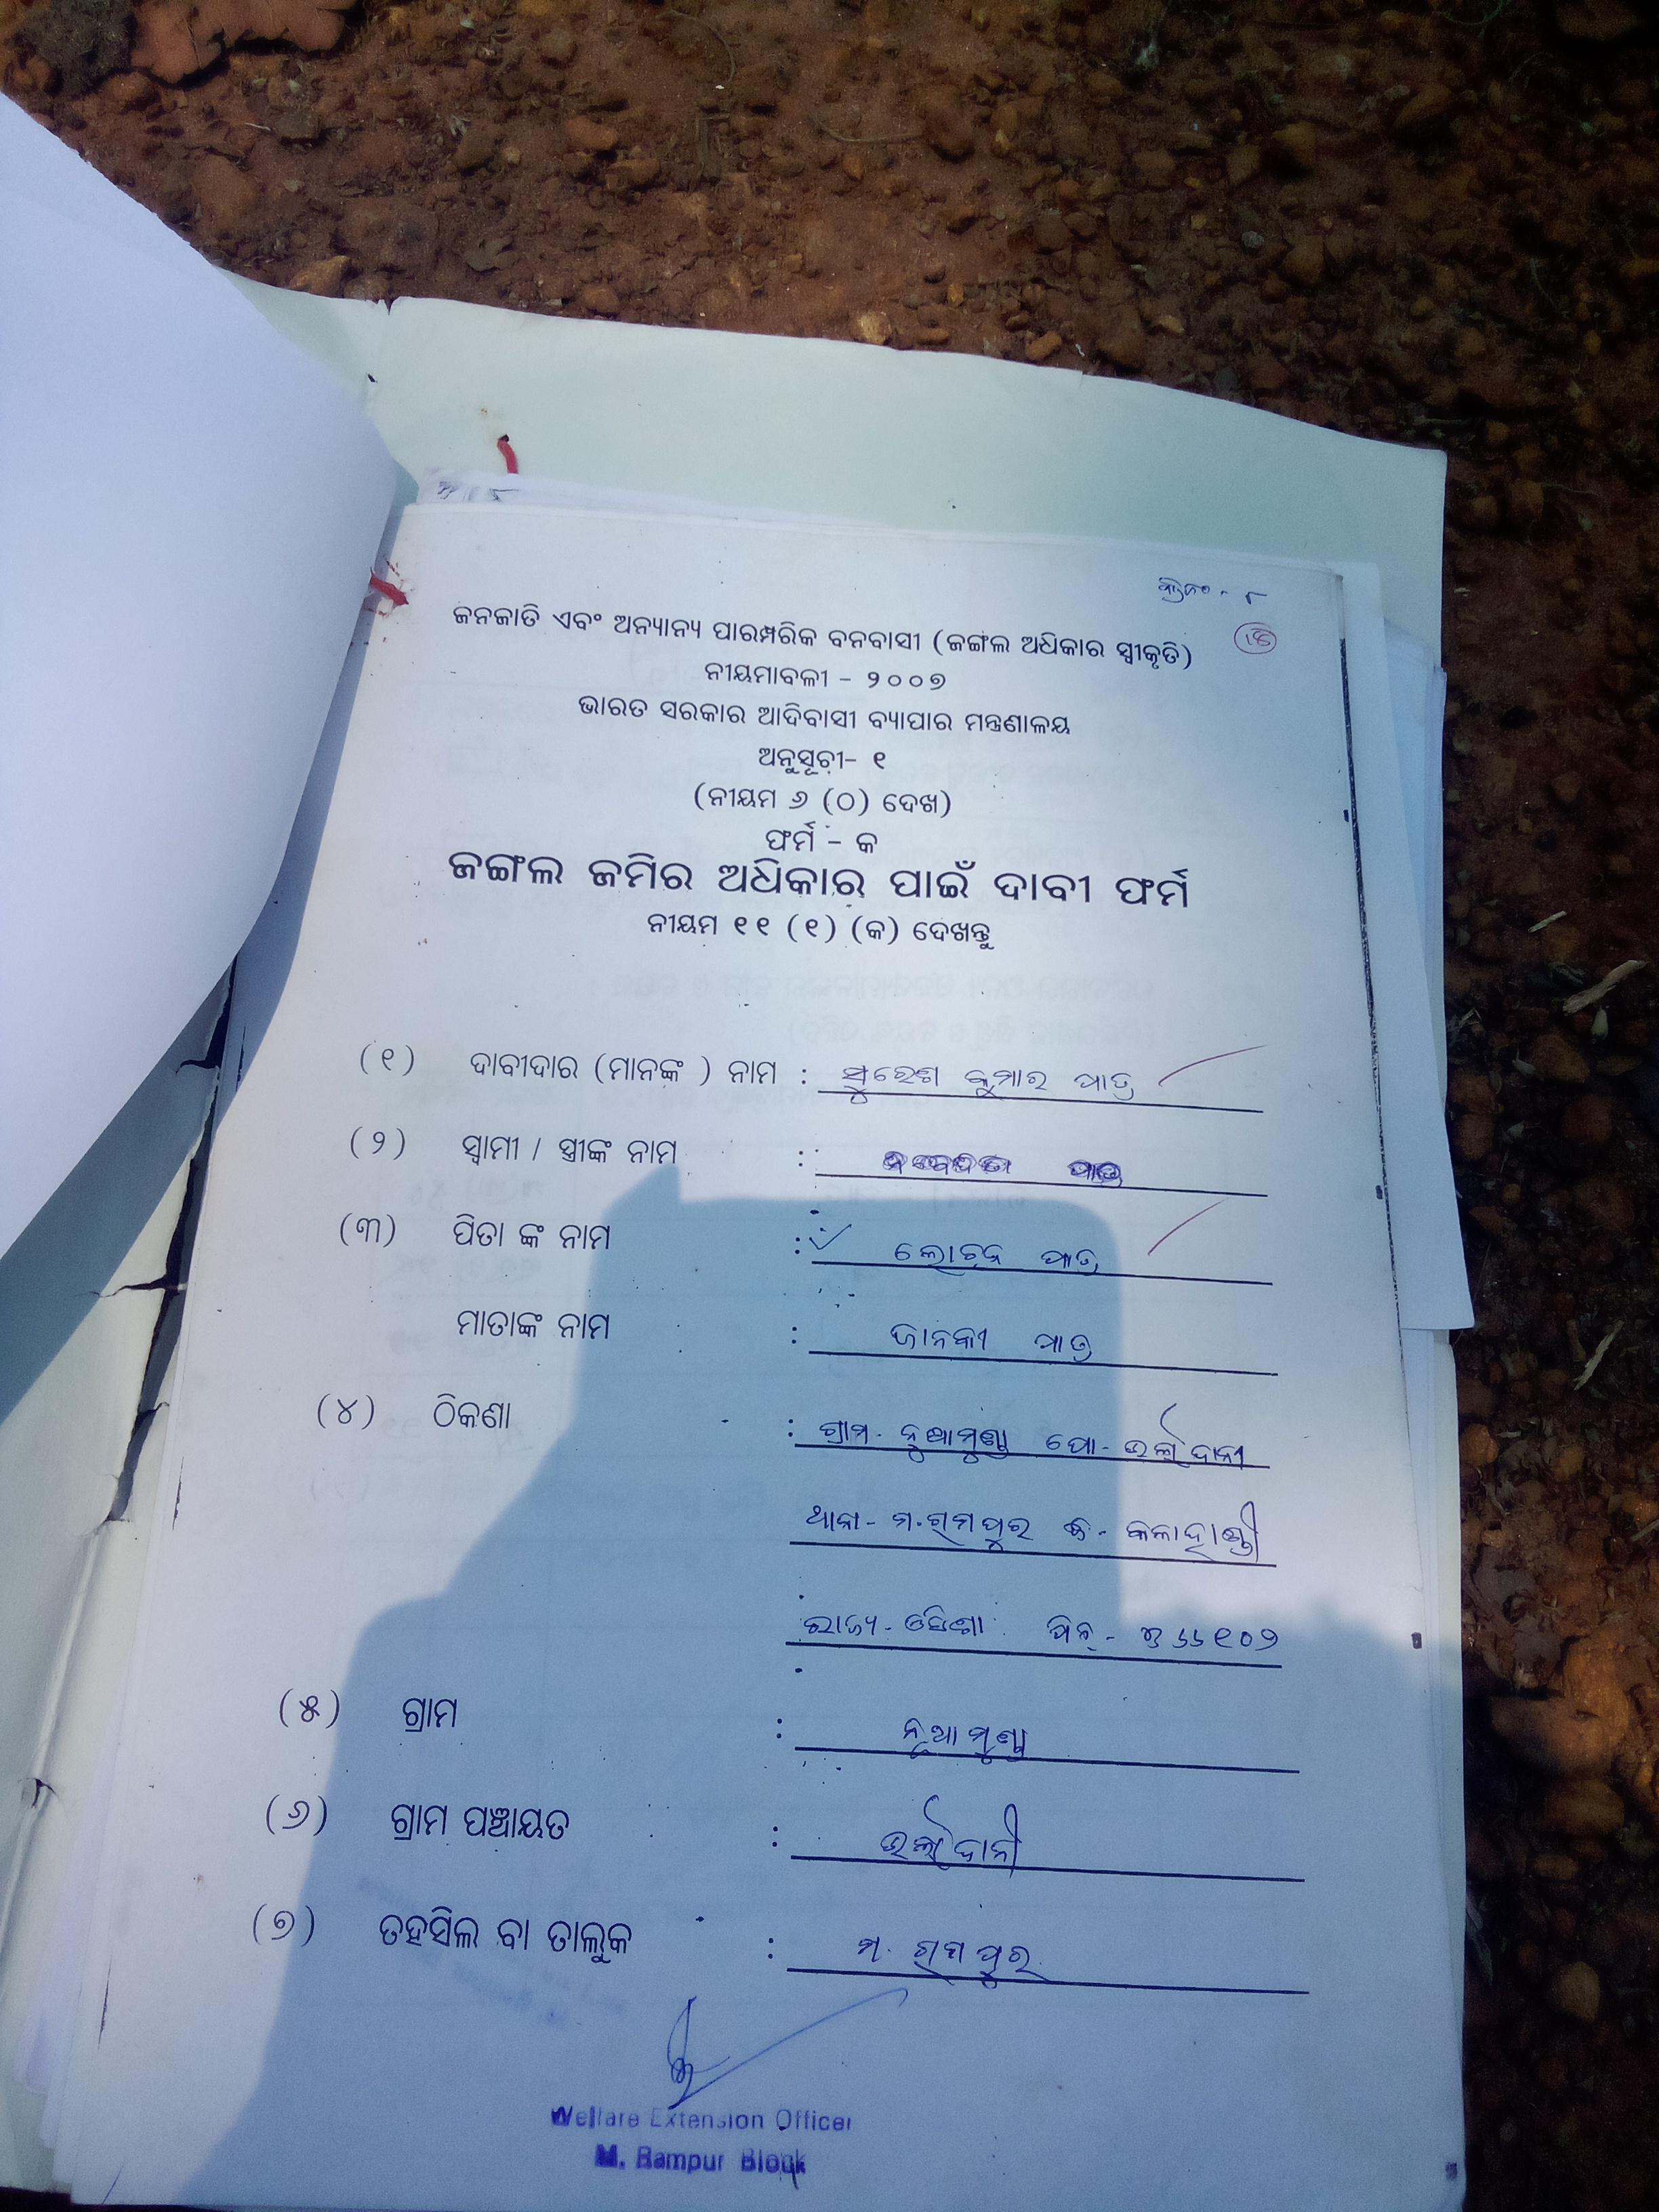 କ୍ରମିକ - ୮
ଜନଜାତି ଏବଂ ଅନ୍ୟାନ୍ୟ ପାରମ୍ପରିକ ବନବାସୀ (ଜଙ୍ଗଲ ଅଧିକାର ସ୍ୱୀକୃତି)
ନୀୟମାବଳୀ - ୨୦୦୭
ଭାରତ ସରକାର ଆଦିବାସୀ ବ୍ୟାପାର ମନ୍ତ୍ରଣାଳୟ
ଅନୁସୂଚୀ- ୧
(ନୀୟମ ୬ (ଠ) ଦେଖ)
ଫର୍ମ - କ
ଜଙ୍ଗଲ ଜମିର ଅଧିକାର ପାଇଁ ଦାବୀ ଫର୍ମ
ନୀୟମ ୧୧ (୧) (କ) ଦେଖନ୍ତୁ
(୧) ଦାବୀଦାର (ମାନଙ୍କ ) ନାମ : ସୁରେଶ କୁମାର ପାତ୍ର
(୨) ସ୍ୱାମୀ / ସ୍ତ୍ରୀଙ୍କ ନାମ : ପାତ୍ର
(୩) ପିତା ଙ୍କ ନାମ : ଲୋଚନ ପାତ୍ର
ମାତାଙ୍କ ନାମ : ଜାନକୀ ପାତ୍ର
(୪) ଠିକଣା : ଗ୍ରାମ- ନୁଆମୁଣ୍ଡା ପୋ- ଉର୍ଲାଦାନୀ
ଥାନା- ମ.ରାମପୁର ଜି- କଳାହାଣ୍ଡି
ରାଜ୍ୟ- ଓଡିଶା ପିନ୍- ୭୬୬୧୦୨
(୫) ଗ୍ରାମ : ନୂଆମୁଣ୍ଡା
(୬) ଗ୍ରାମ ପଞ୍ଚାୟତ : ଉର୍ଲାଦାନୀ
(୭) ତହସିଲ ବା ତାଲୁକ : ମ. ରାମପୁର
Welfare Extension Officer
M. Rampur Block